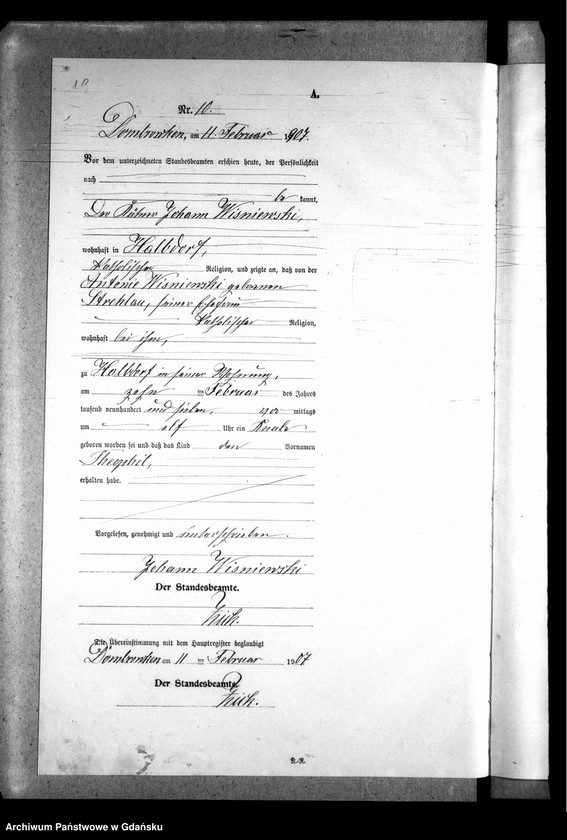 10
A.
Nr. 10.
Dombrowken, am 11 Februar 1907.
Vor dem unterzeichneten Standesbeamten erschien heute, der Persönlichkeit
nach
be kannt,
Der Käthner Johann Wisniewski,
wohnhaft in Halbdorf,
katholischer Religion, und zeigte an, daß von der
Antonie Wisniewski geborenen
Strehlau, seiner Ehefrau
katholischer Religion,
wohnhaft bei ihm,
zu Halbdorf in seiner Wohnung,
am zehn ten Februar des Jahres
tausend neunhundert und sieben, vor mittags
um elf Uhr ein Knabe
geboren worden sei und daß das Kind den Vornamen
Theophil,
erhalten habe.
Vorgelesen, genehmigt und unterschrieben.
Johann Wisniewski
Der Standesbeamte.
Die Übereinstimmung mit dem Hauptregister beglaubigt
Dombrowken am 11 ten Februar 1907
Der Standesbeamte.
Archiwum Państwowe w Gdańsku